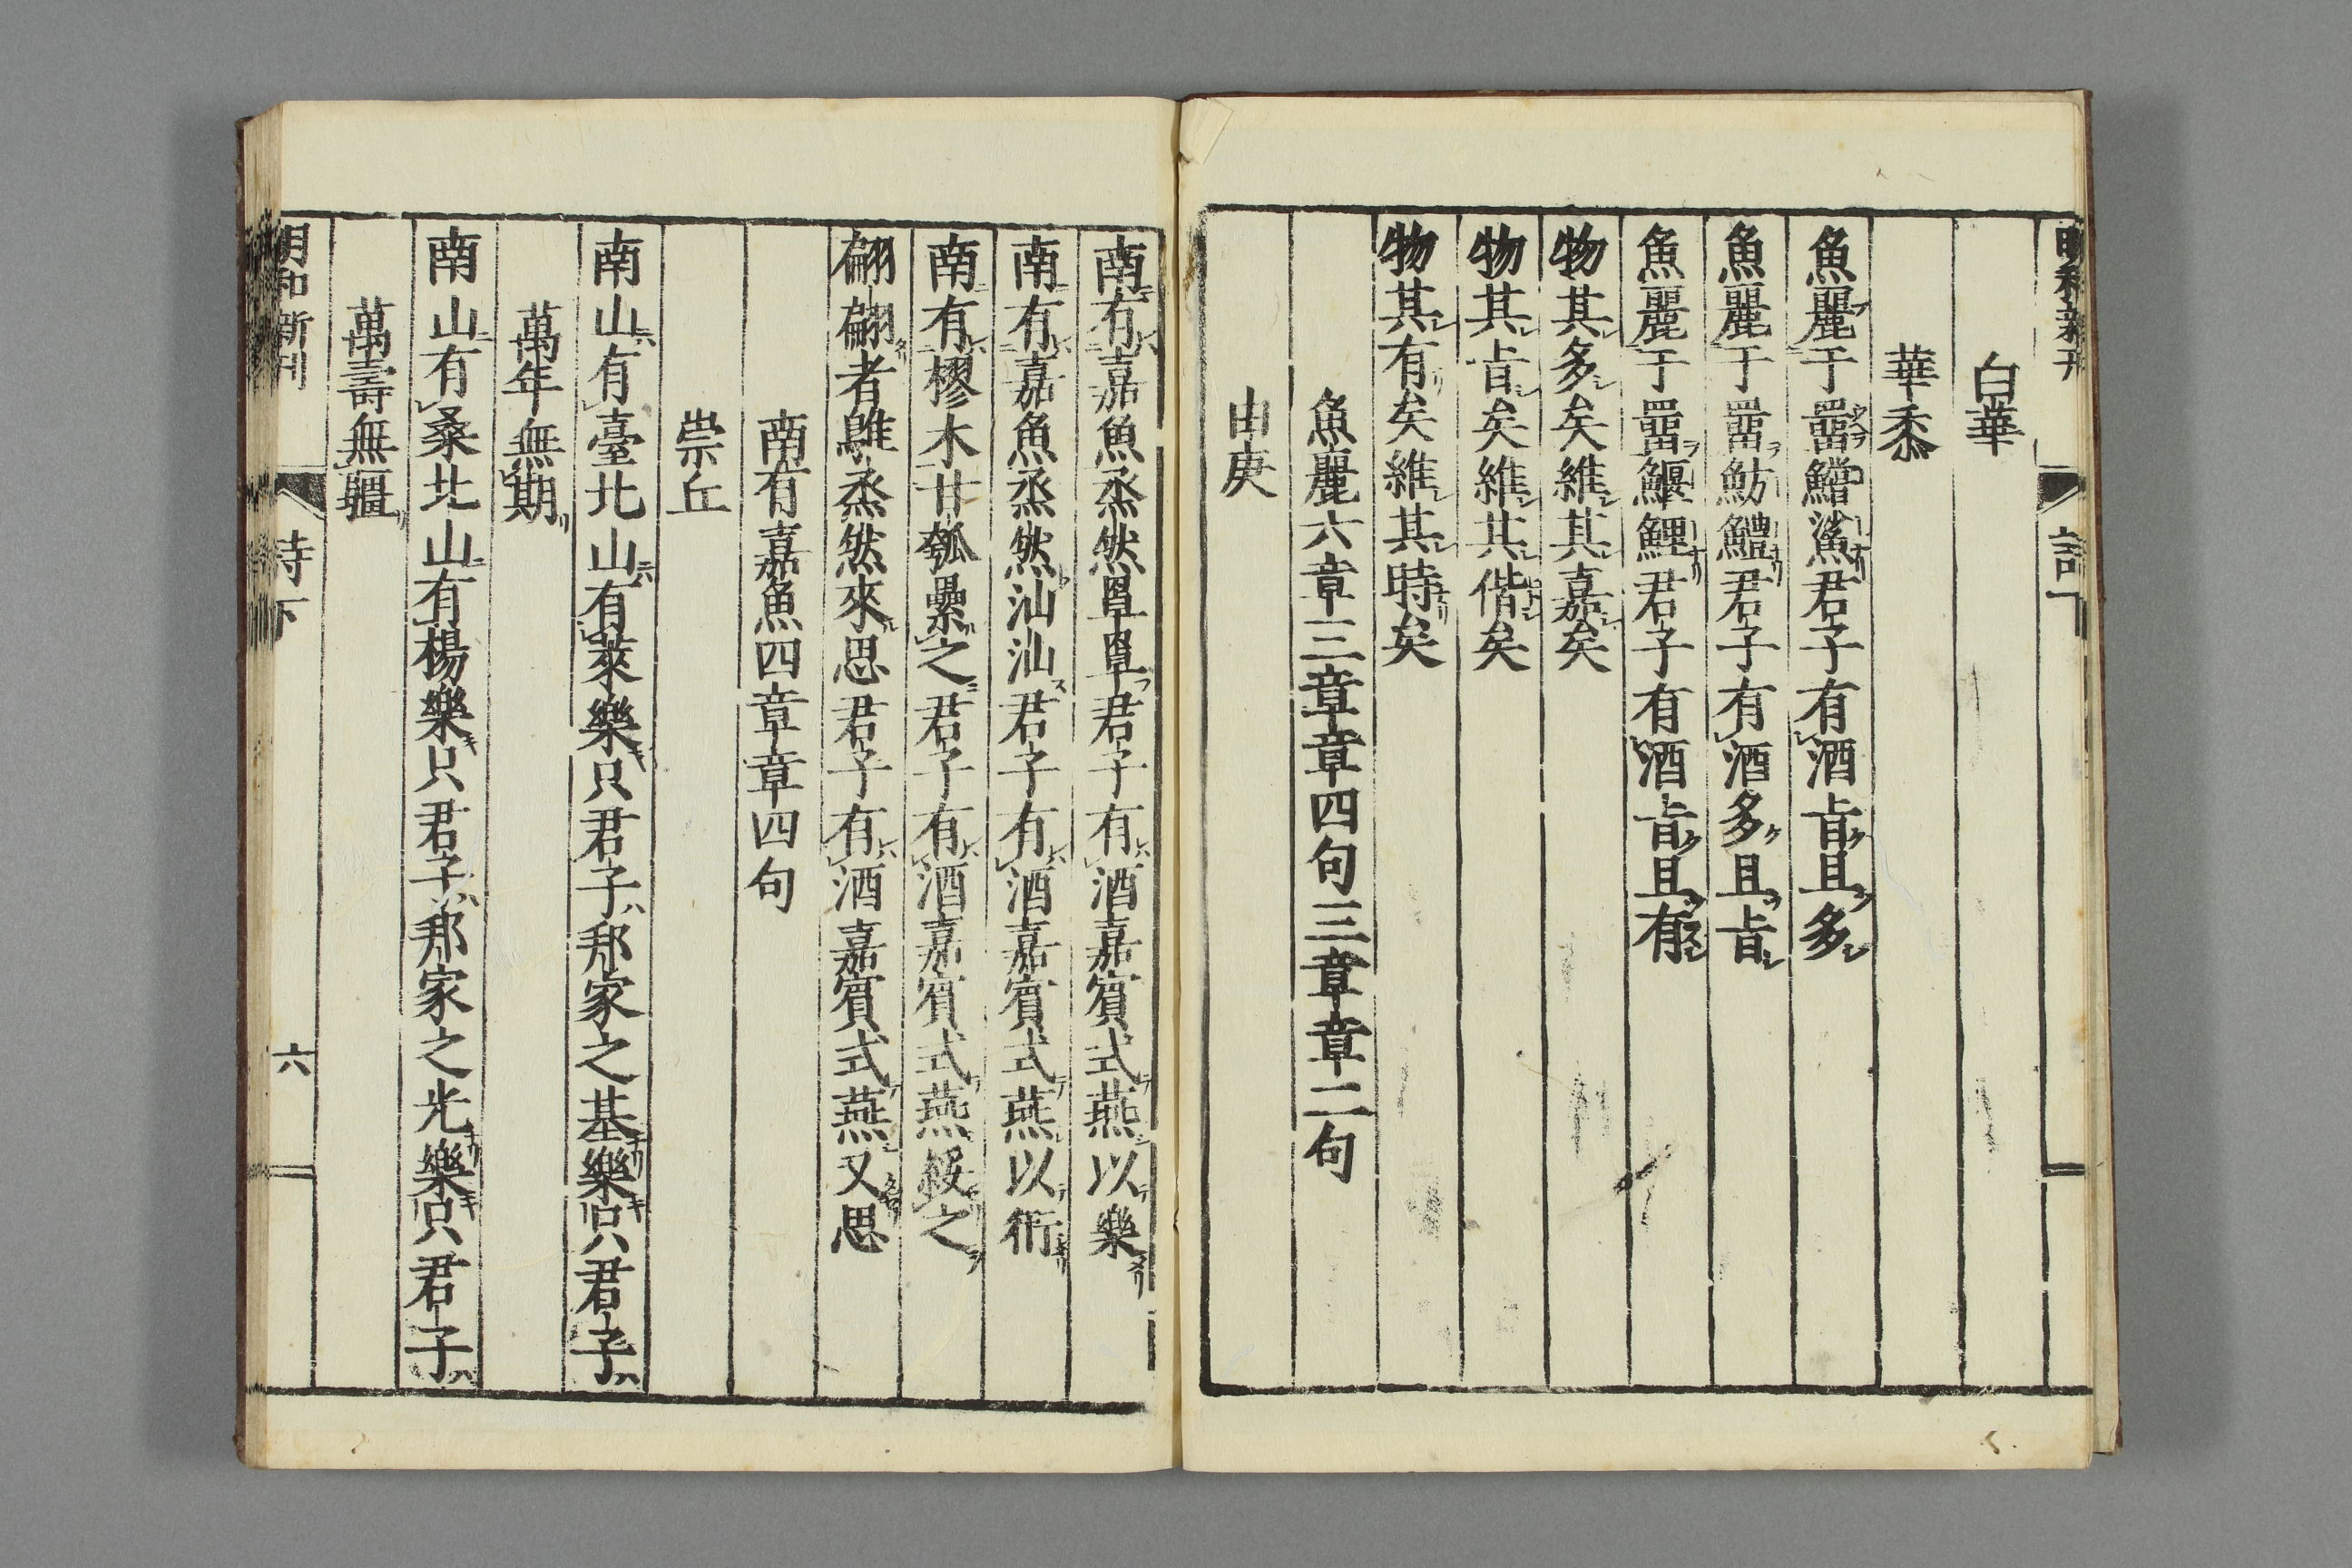 明和新刊
詩下
白華
華黍
魚麗于罶鱨鯊君子有酒旨且多
魚麗于罶魴鱧君子有酒多且旨
魚麗于罶鰋鯉君子有酒旨且有
物其多矣維其嘉矣
物其旨矣維其偕矣
物其有矣維其時矣
魚麗六章三章章四句三章章二句
由庚
南有嘉魚烝然罩罩君子有酒嘉賓式燕以樂
南有嘉魚烝然汕汕君子有酒嘉賓式燕以衎
南有樛木甘瓠纍之君子有酒嘉賓式燕綏之
翩翩者鵻烝然來思君子有酒嘉賓式燕又思
南有嘉魚四章章四句
崇丘
南山有臺北山有萊樂只君子邦家之基樂只君子
萬年無期
南山有桑北山有楊樂只君子邦家之光樂只君子
萬壽無疆
明和新刊
詩下
六